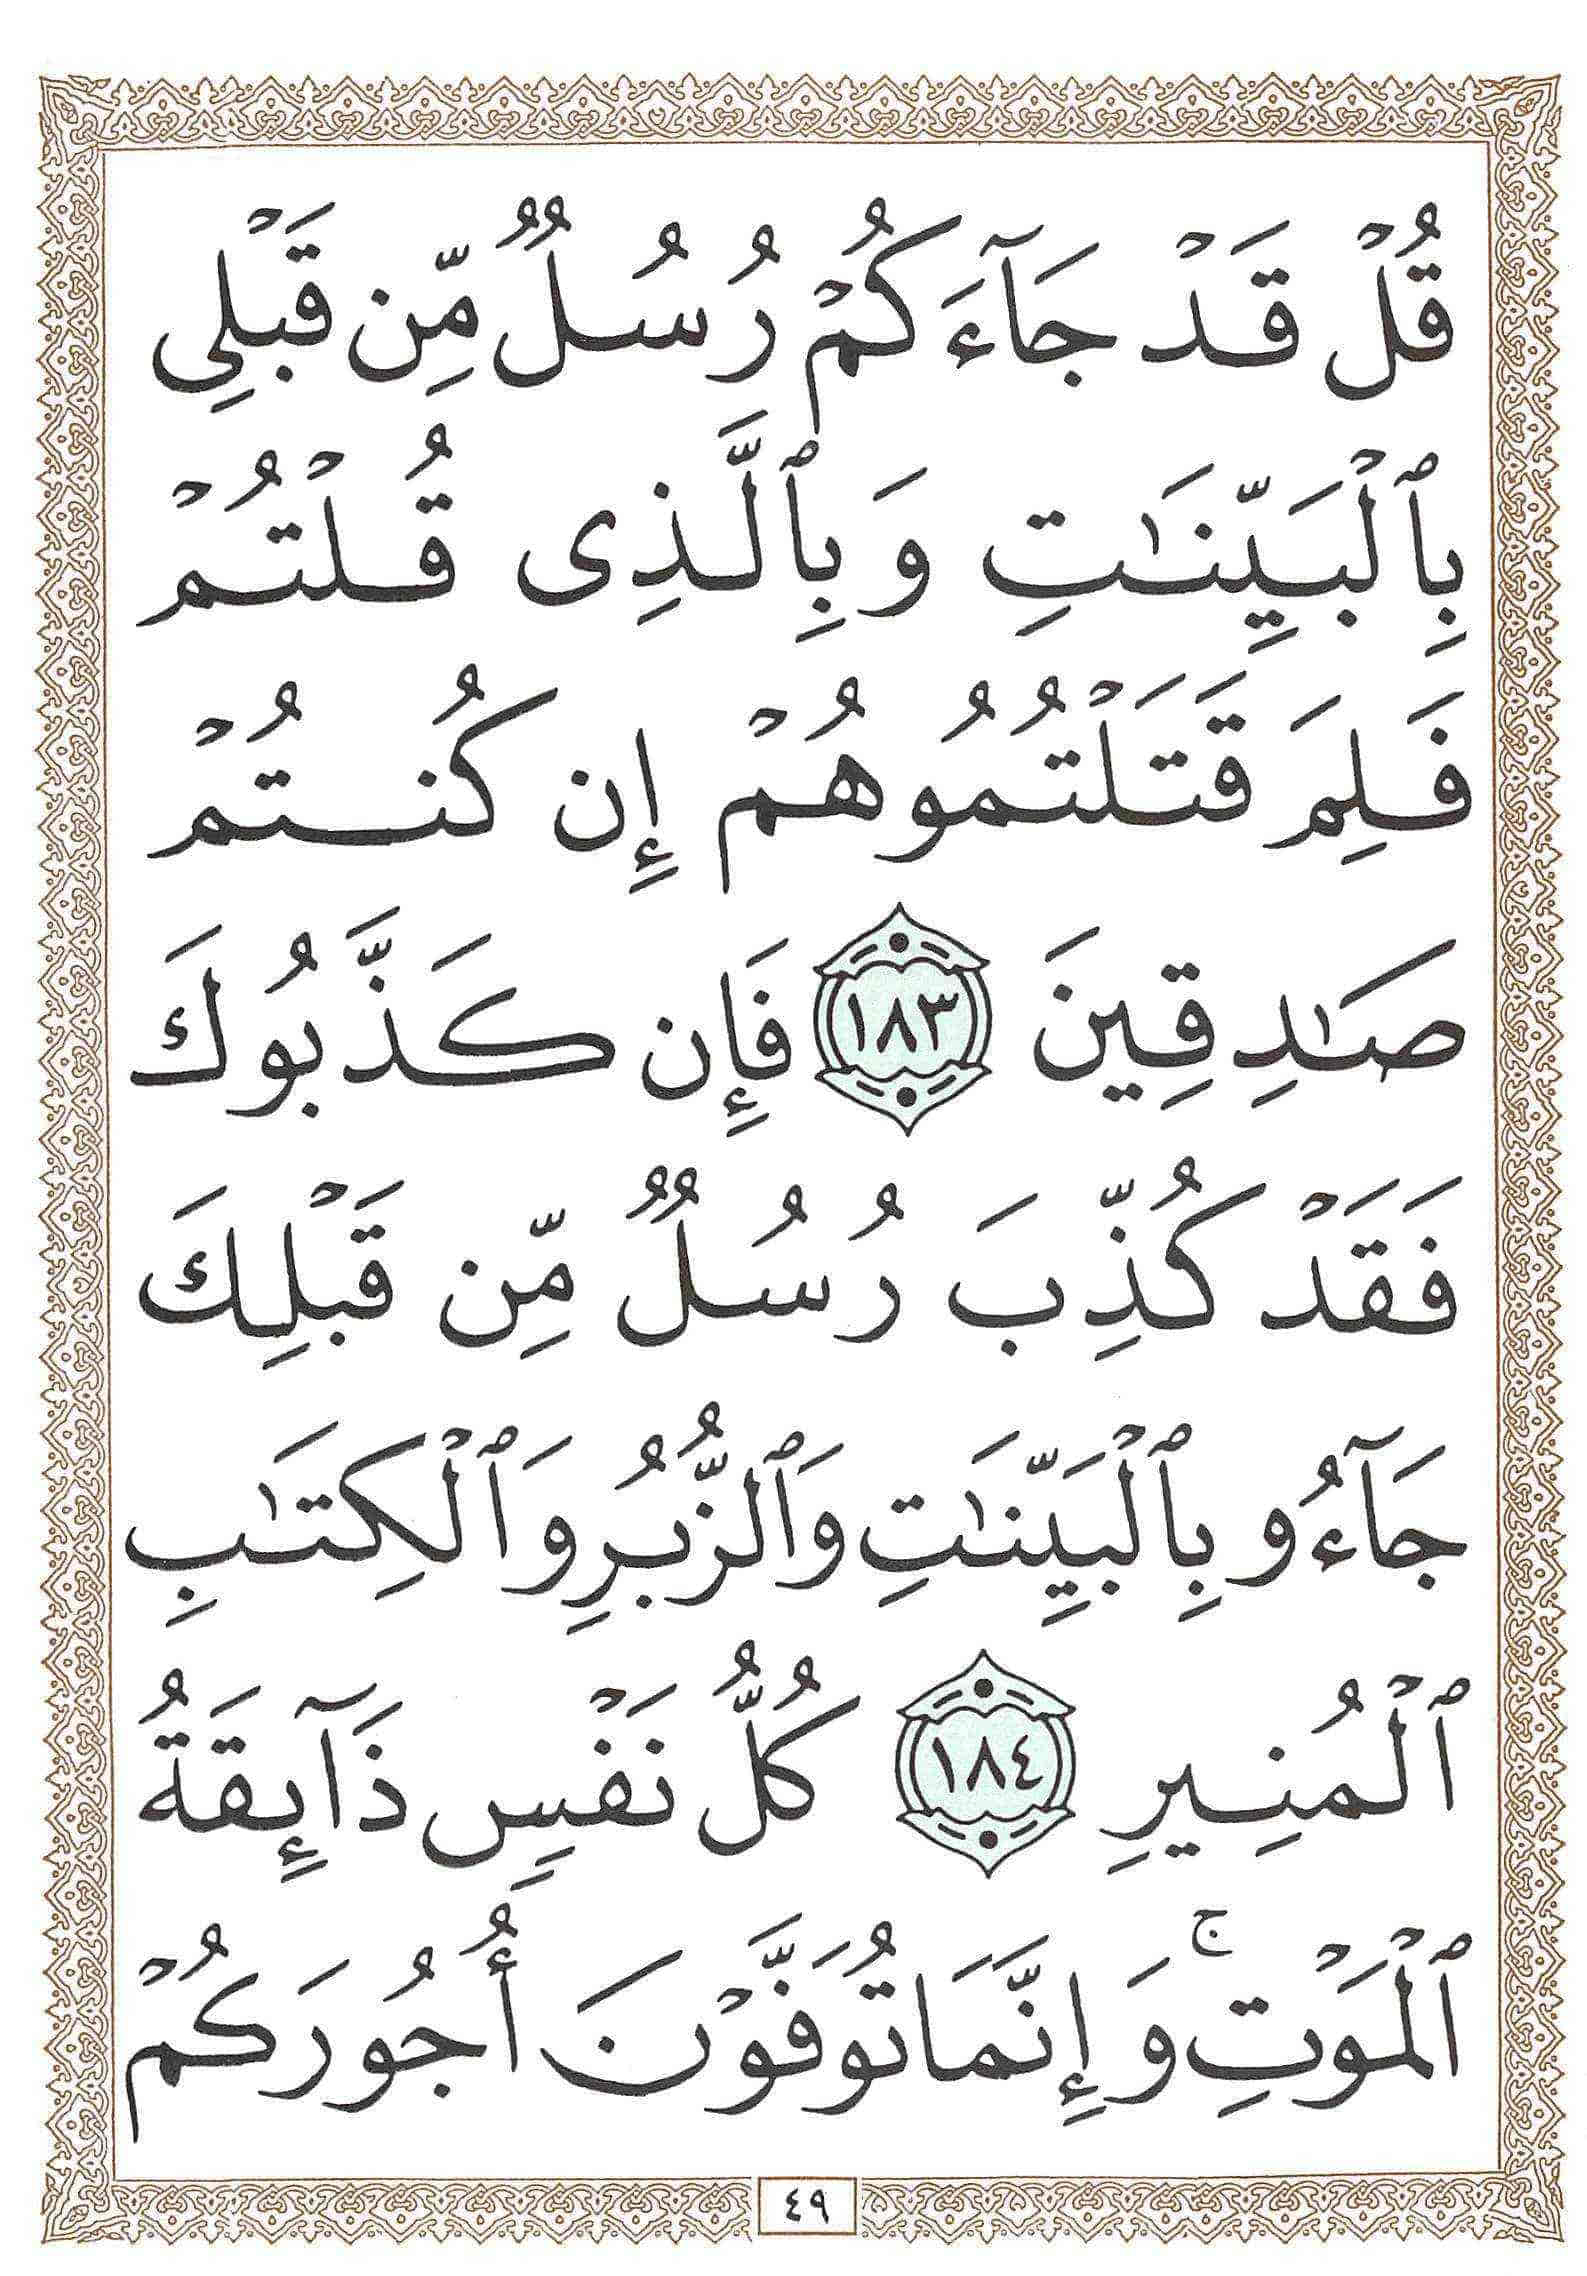 قُلْ قَدْ جَآءَكُمْ رُسُلٌ مِّن قَبْلِى
بِٱلْبَيِّنَٰتِ وَبِٱلَّذِى قُلْتُمْ
فَلِمَ قَتَلْتُمُوهُمْ إِن كُنتُمْ
صَٰدِقِينَ ١٨٣ فَإِن كَذَّبُوكَ
فَقَدْ كُذِّبَ رُسُلٌ مِّن قَبْلِكَ
جَآءُو بِٱلْبَيِّنَٰتِ وَٱلزُّبُرِ وَٱلْكِتَٰبِ
ٱلْمُنِيرِ ١٨٤ كُلُّ نَفْسٍ ذَآئِقَةُ
ٱلْمَوْتِ ۚ وَإِنَّمَا تُوَفَّوْنَ أُجُورَكُمْ
٤٩